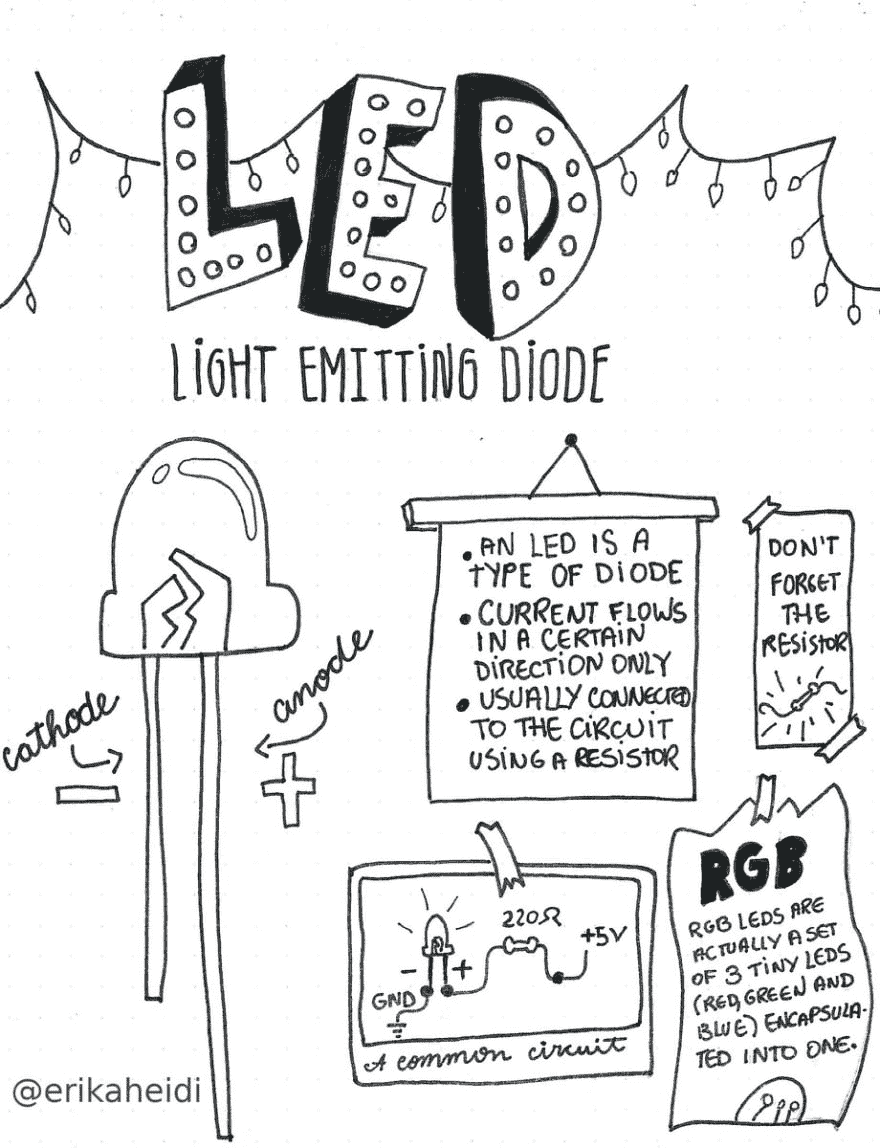 LED
LiGHT EMITTiNG DiODE
cathode
−
anode
+
• AN LED IS A
TYPE OF DiODE
• CURRENT FLOWS
IN A CERTAIN
DIRECTION ONLY
• USUALLY CONNECTED
TO THE CiRCUIT
USING A RESISTOR
DON'T
FORGET
THE
RESISTOR
220Ω
+5V
− +
GND
A common circuit
RGB
RGB LEDS ARE
ACTUALLY A SET
OF 3 TINY LEDS
(RED, GREEN AND
BLUE) ENCAPSULA-
TED INTO ONE.
@erikaheidi